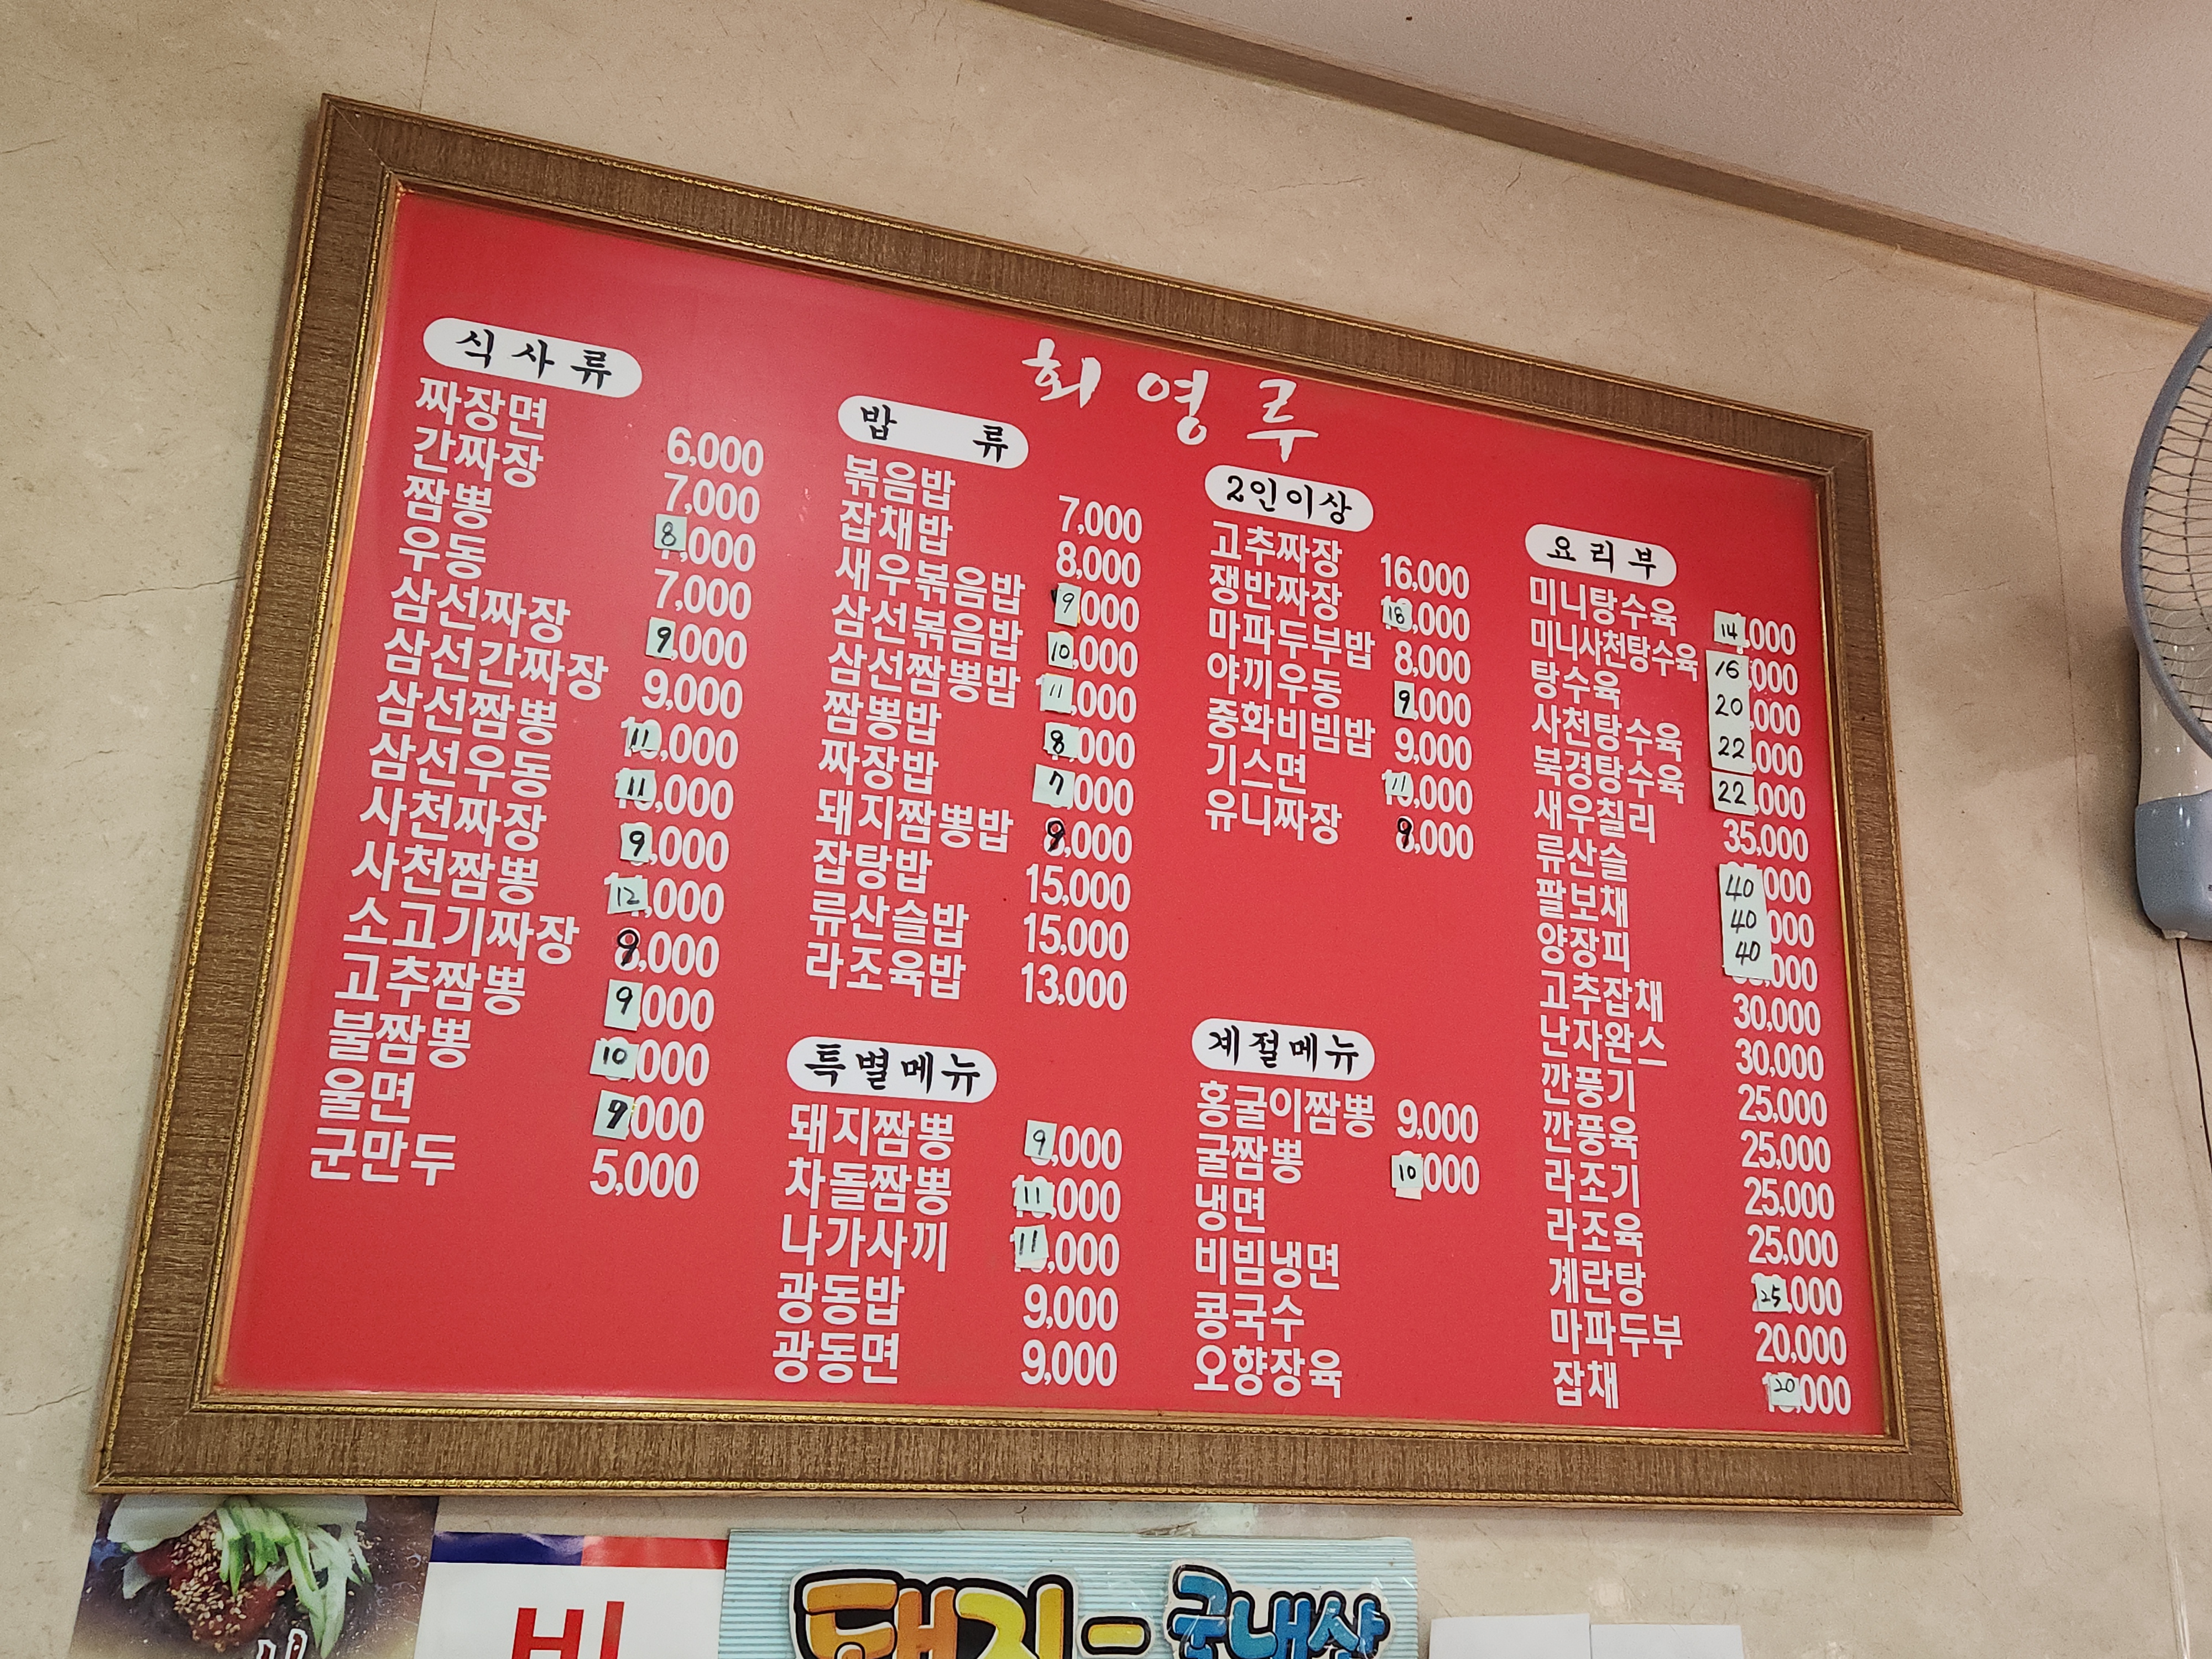 회영루
식사류
짜장면 6,000
간짜장 7,000
짬뽕 8,000
우동 7,000
삼선짜장 9,000
삼선간짜장 9,000
삼선짬뽕 11,000
삼선우동 11,000
사천짜장 9,000
사천짬뽕 12,000
소고기짜장 9,000
고추짬뽕 9,000
불짬뽕 10,000
울면 9,000
군만두 5,000
밥류
볶음밥 7,000
잡채밥 8,000
새우볶음밥 9,000
삼선볶음밥 10,000
삼선짬뽕밥 11,000
짬뽕밥 8,000
짜장밥 7,000
돼지짬뽕밥 9,000
잡탕밥 15,000
류산슬밥 15,000
라조육밥 13,000
특별메뉴
돼지짬뽕 9,000
차돌짬뽕 11,000
나가사끼 11,000
광동밥 9,000
광동면 9,000
2인이상
고추짜장 16,000
쟁반짜장 18,000
마파두부밥 8,000
야끼우동 9,000
중화비빔밥 9,000
기스면 11,000
유니짜장 9,000
계절메뉴
홍굴이짬뽕 9,000
굴짬뽕 10,000
냉면
비빔냉면
콩국수
오향장육
요리부
미니탕수육 14,000
미니사천탕수육 16,000
탕수육 20,000
사천탕수육 22,000
북경탕수육 22,000
새우칠리 35,000
류산슬 40,000
팔보채 40,000
양장피 40,000
고추잡채 30,000
난자완스 30,000
깐풍기 25,000
깐풍육 25,000
라조기 25,000
라조육 25,000
계란탕 25,000
마파두부 20,000
잡채 20,000
돼지-국내산